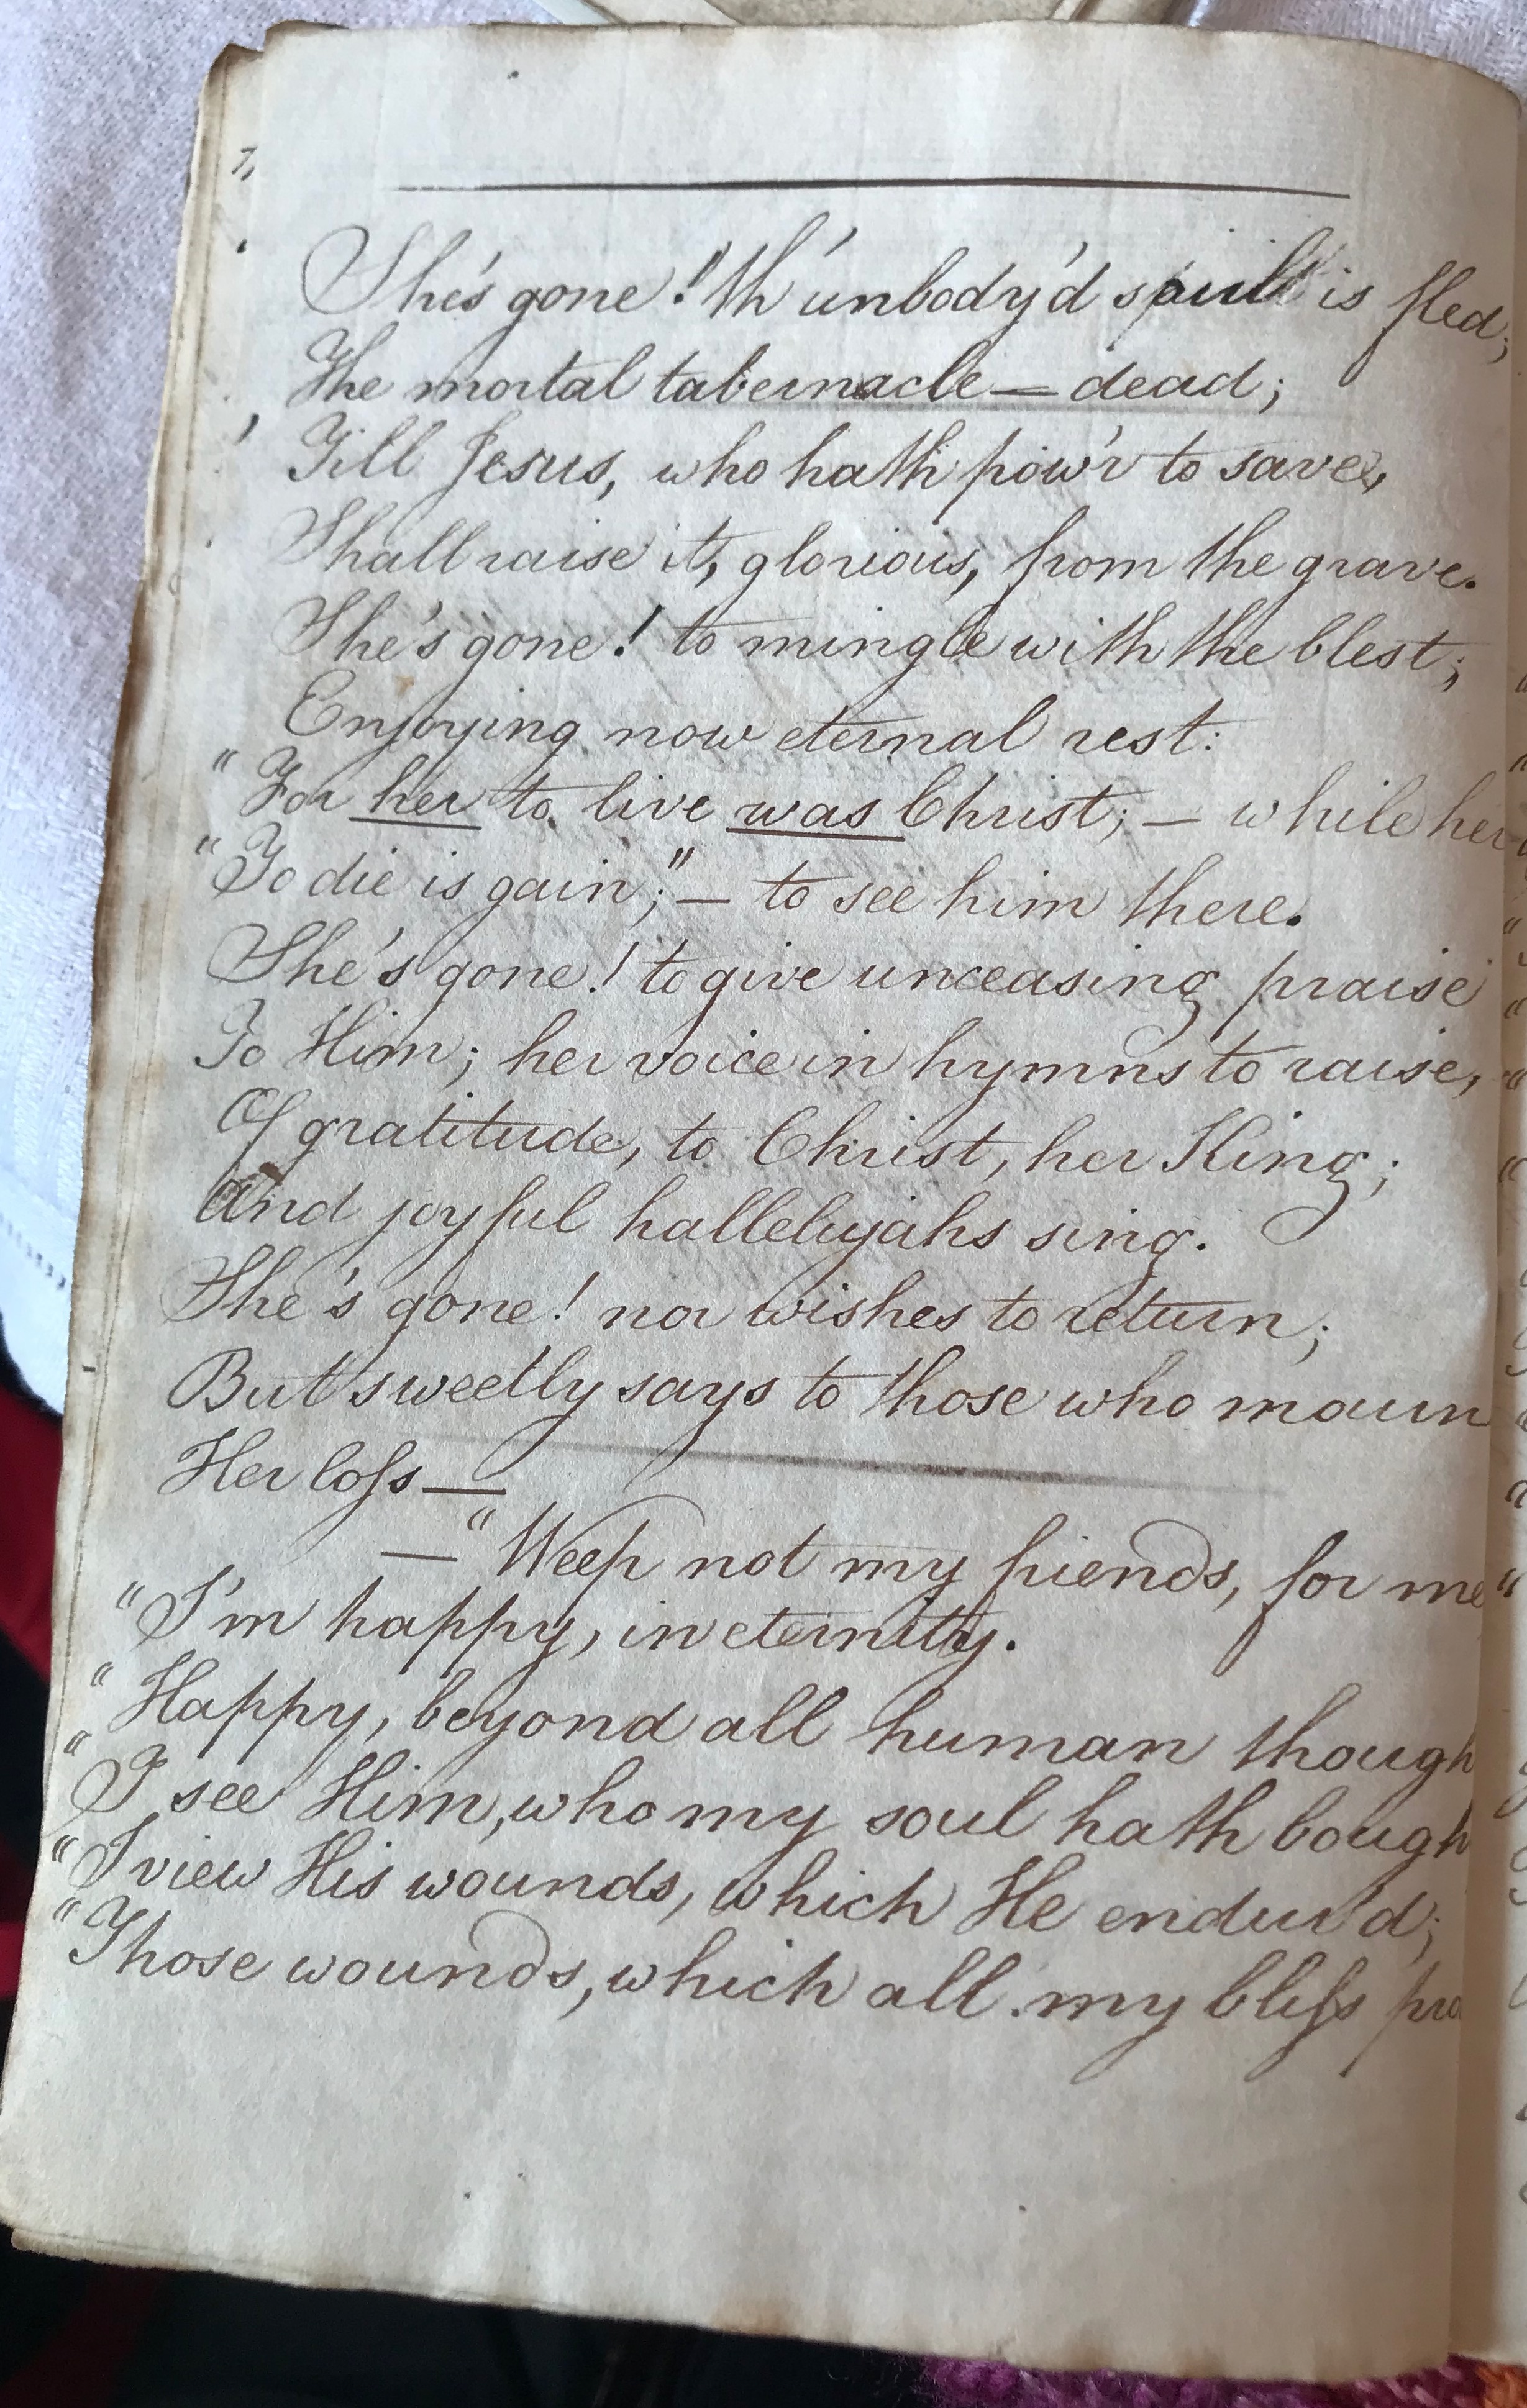 She's gone! th' unbody'd spirit is fled;
The mortal tabernacle — dead;
Till Jesus, who hath pow'r to save,
Shall raise it, glorious, from the grave.
She's gone! to mingle with the blest;
Enjoying now eternal rest:
"For her to live was Christ; — while her
"To die is gain;" — to see him there.
She's gone! to give unceasing praise
To Him; her voice in hymns to raise,
Of gratitude, to Christ, her King;
And joyful hallelujahs sing.
She's gone! nor wishes to return;
But sweetly says to those who mourn
Her loſs —
— "Weep not my friends, for me
"I'm happy, in eternity.
"Happy, beyond all human though
"I see Him, who my soul hath bough
"I view His wounds, which He endur'd;
"Those wounds, which all my bliſs pro